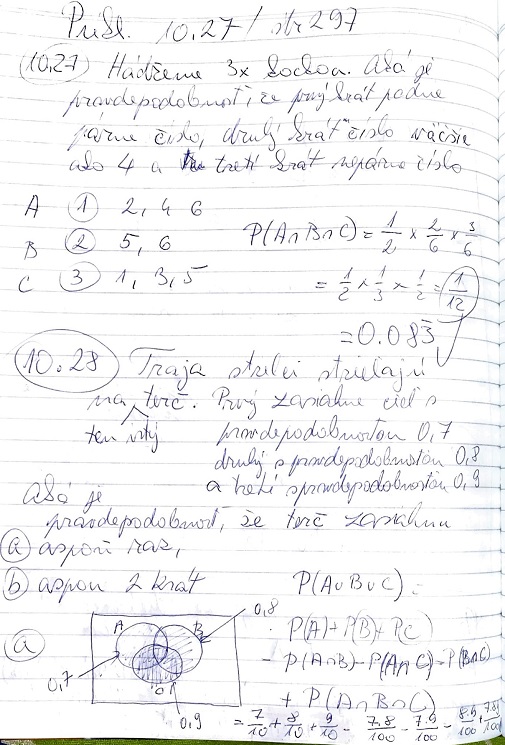 Príkl. 10.27/ str 297
10.27 Hádžeme 3x kockou. Aká je
pravdepodobnosť, že prvý krát padne
párne číslo, druhý krát číslo väčšie
ako 4 a tretí krát nepárne číslo
A 1 2, 4 6
B 2 5, 6
C 3 1, 3, 5
P(A∩B∩C) = 1/2 × 2/6 × 3/6
= 1/2 × 1/3 × 1/2 = 1/12
= 0.083̅
10.28 Traja strelci strieľajú
na terč. Prvý zasiahne cieľ s
ten istý pravdepodobnosťou 0,7
druhý s pravdepodobnosťou 0,8
a tretí s pravdepodobnosťou 0,9
Aká je
pravdepodobnosť, že terč zasiahnu
a aspoň raz,
b aspon 2 krát
P(A∪B∪C) =
P(A)+P(B)+P(C)
- P(A∩B)-P(A∩C)-P(B∩C)
+ P(A∩B∩C)
= 7/10 + 8/10 + 9/10 - 7.8/100 - 7.9/100 - 8.9/100 +
a
A B 0,8
0,7 C
0,9